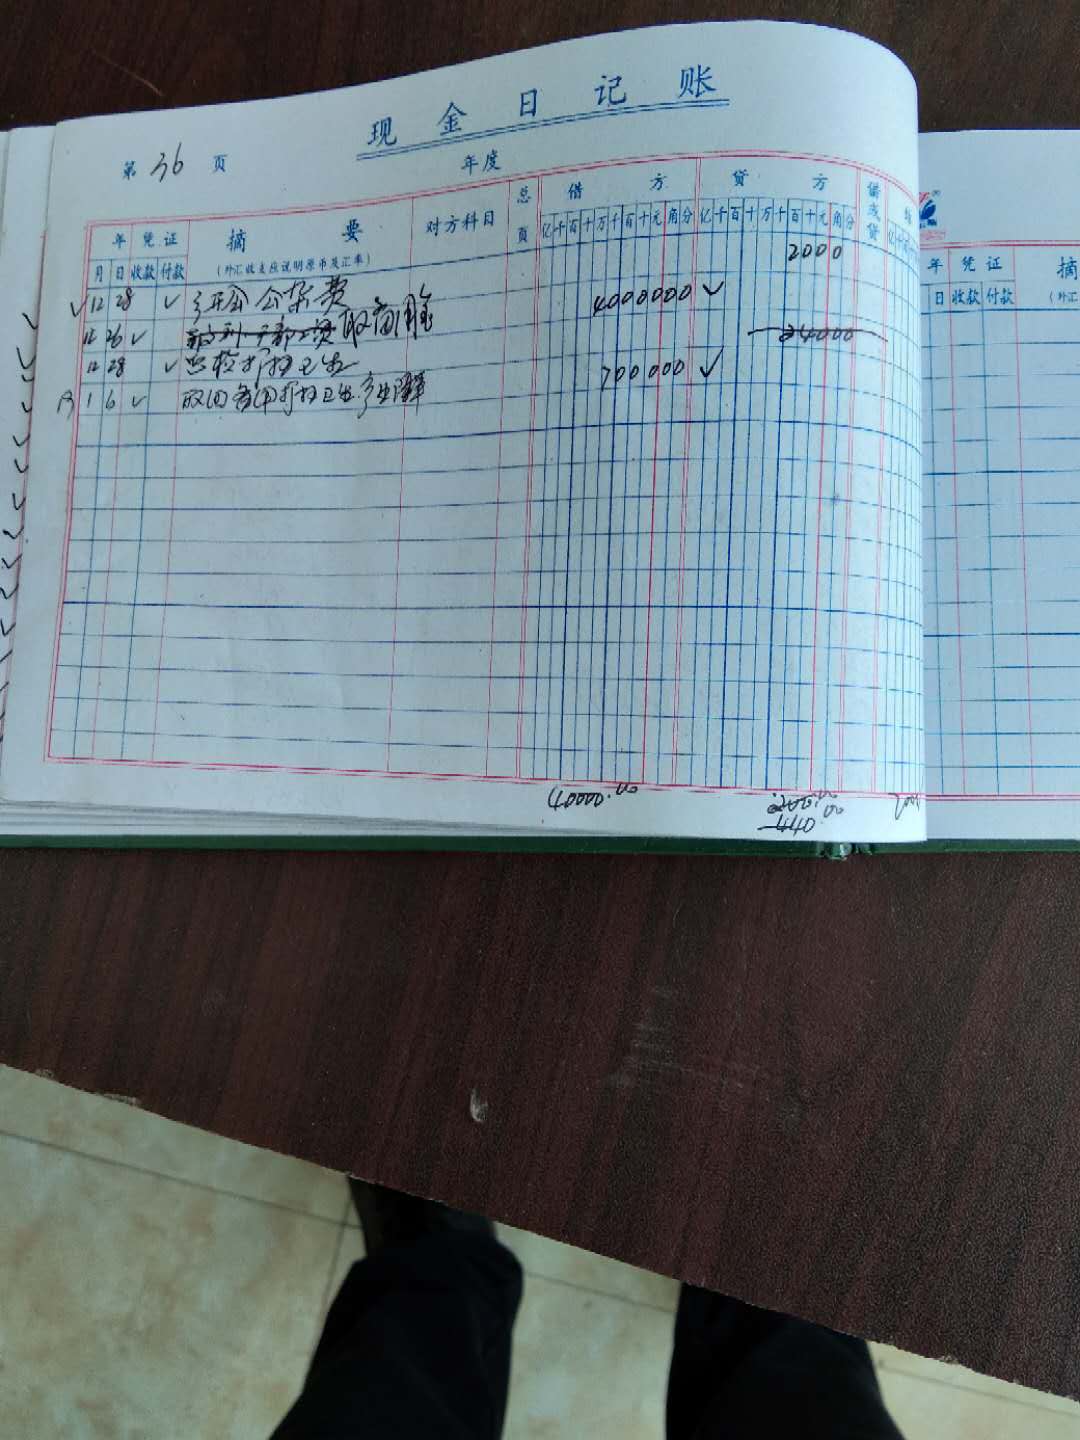 现金日记账
第 36 页
年度
年 凭证 摘要 对方科目 总页 借方 贷方 借或贷
月 日 收款 付款 (外汇收支应说明原币及汇率) 亿千百十万千百十元角分 亿千百十万千百十元角分
✓ 12 28 ✓ 公杂费 2000
12 26 ✓ 取备用金 4000000 ✓
12 28 ✓ 打扫卫生 24000
1 6 ✓ 取回备用打扫卫生 700000 ✓
40000.00 200.00
440.00
年 凭证 摘
日 收款 付款 (外汇